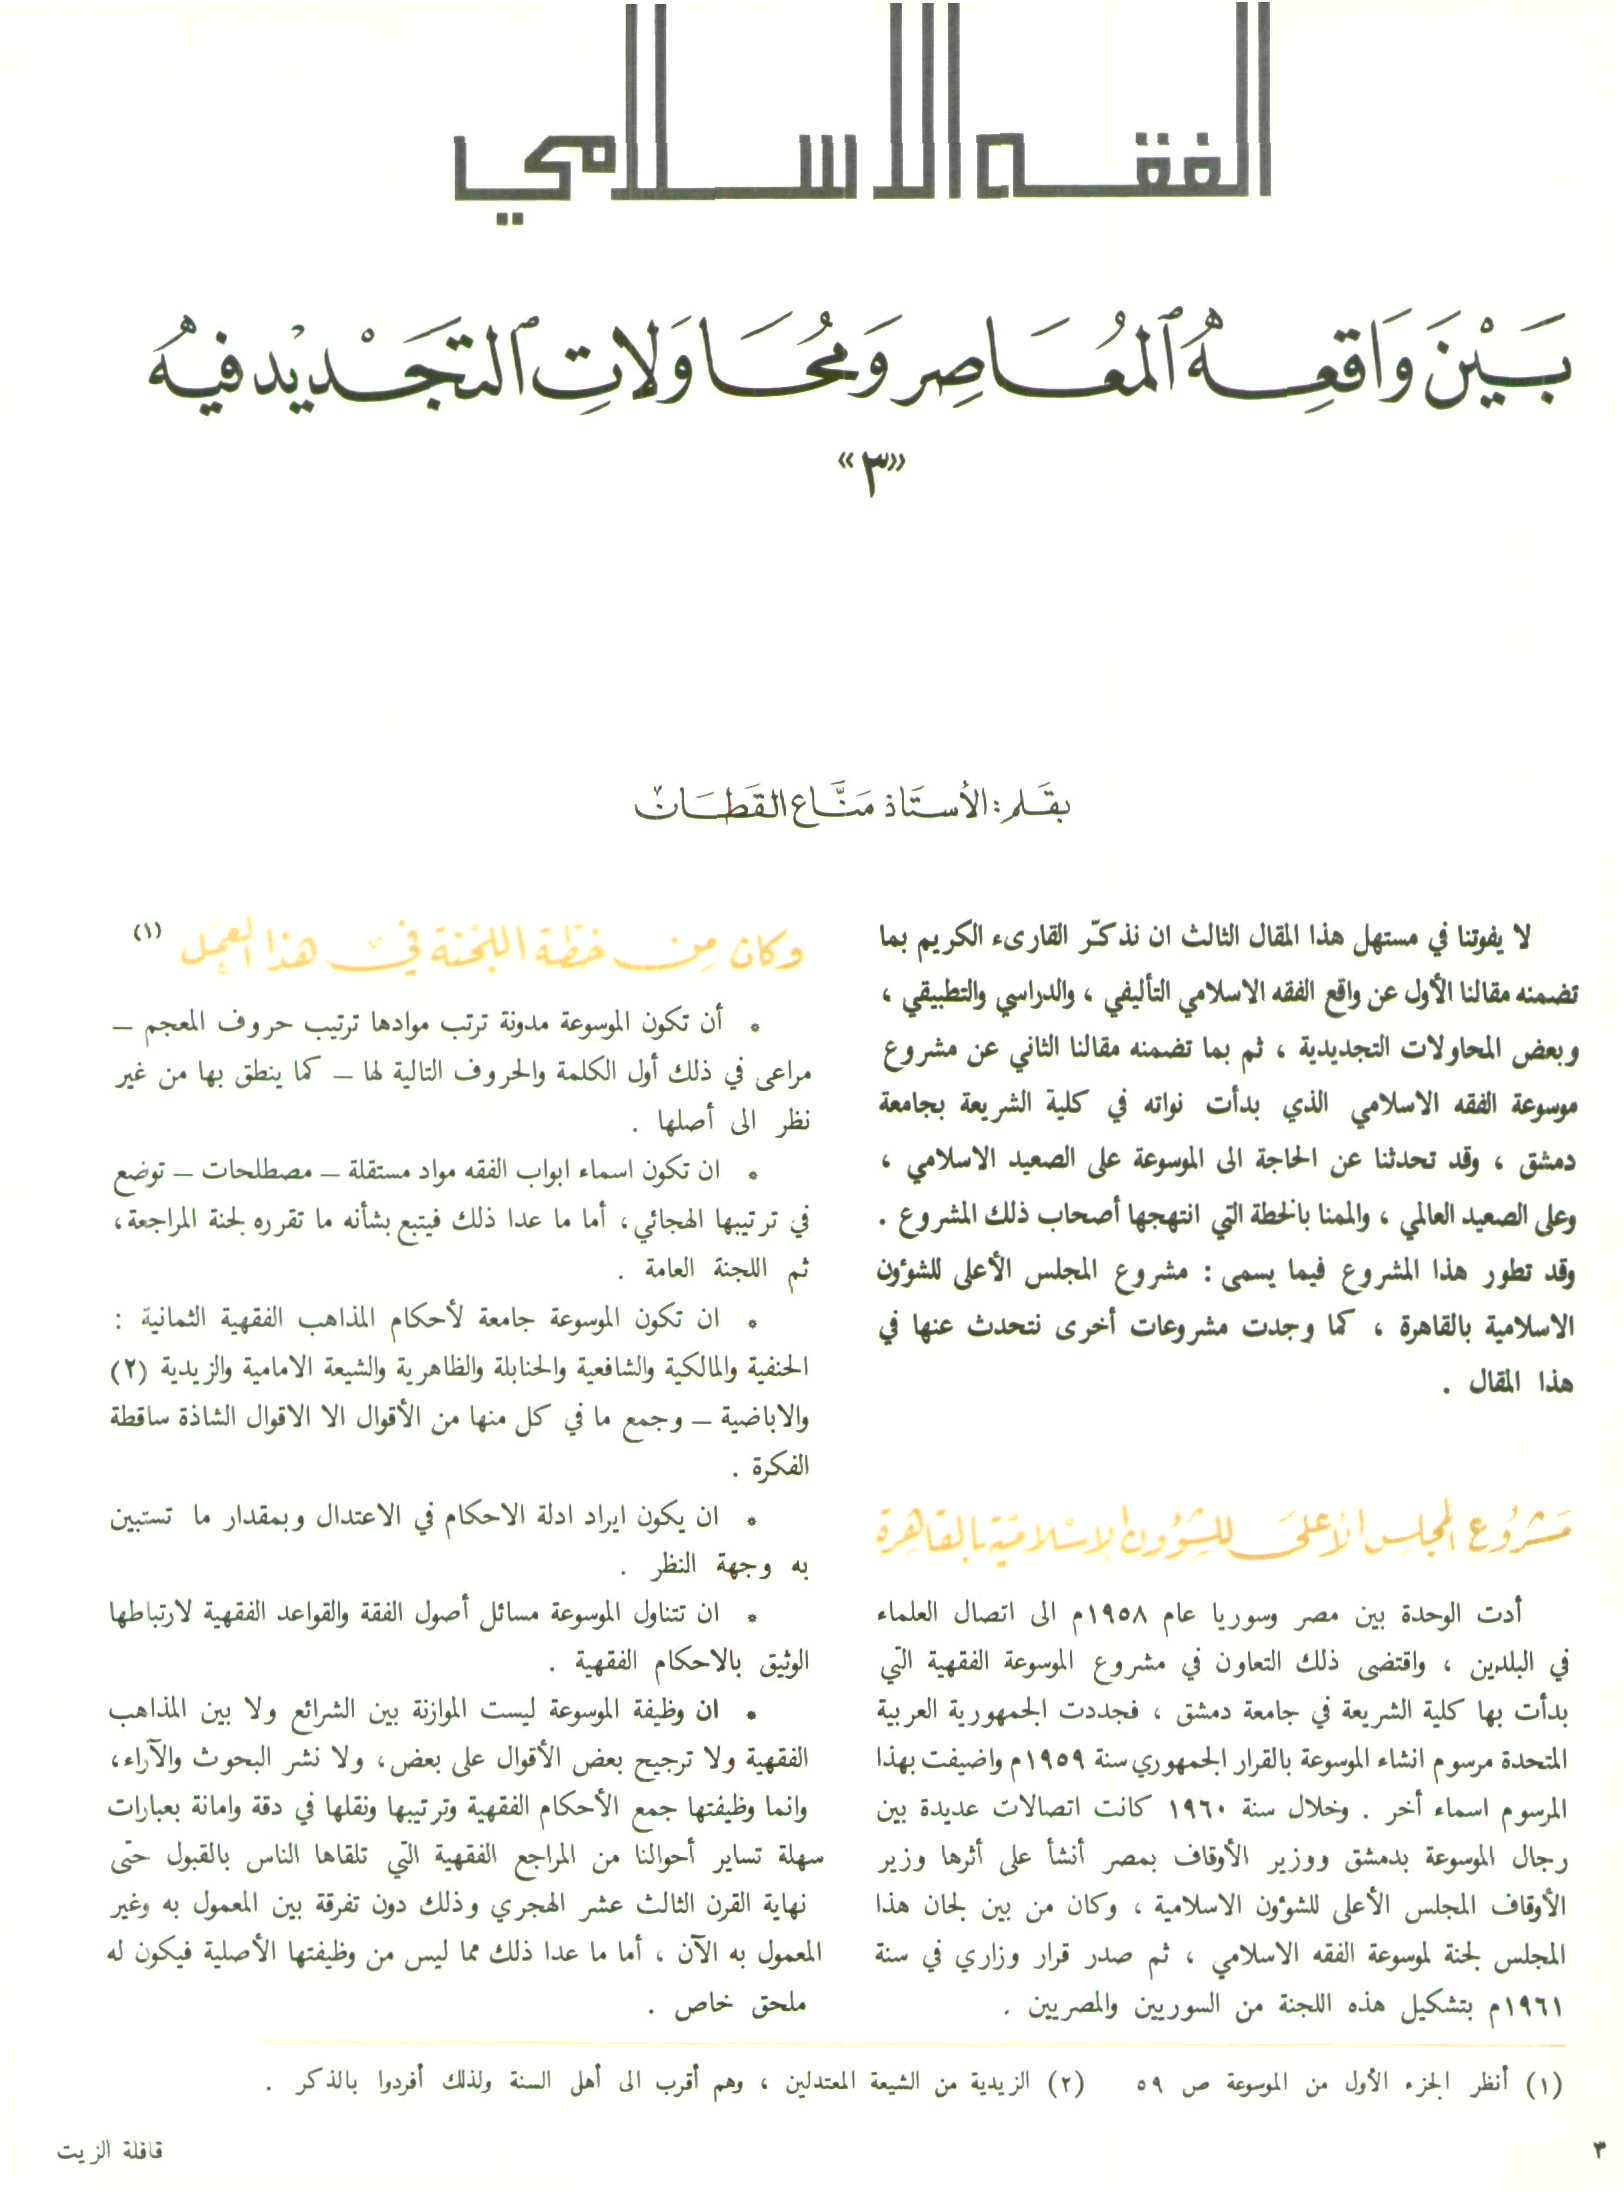 الفقه الاسلامي
بَيْنَ وَاقعِهُ ٱلمُعَاصِر وَمُحَاوَلاتِ ٱلتجَدْيد فيهُ
«٣»
بقَلم: الأستَاذ مَنَّاع القَطَان
لا يفوتنا في مستهل هذا المقال الثالث ان نذكّر القارىء الكريم بما
تضمنه مقالنا الأول عن واقع الفقه الاسلامي التأليفي ، والدراسي والتطبيقي ،
وبعض المحاولات التجديدية ، ثم بما تضمنه مقالنا الثاني عن مشروع
موسوعة الفقه الاسلامي الذي بدأت نواته في كلية الشريعة بجامعة
دمشق ، وقد تحدثنا عن الحاجة الى الموسوعة على الصعيد الاسلامي ،
وعلى الصعيد العالمي ، والممنا بالخطة التي انتهجها أصحاب ذلك المشروع .
وقد تطور هذا المشروع فيما يسمى : مشروع المجلس الأعلى للشؤون
الاسلامية بالقاهرة ، كما وجدت مشروعات أخرى نتحدث عنها في
هذا المقال .
مَشرُوع المجلِس الأعلىَ للشِؤُون الإسْلاميّة بالقاهِرة
أدت الوحدة بين مصر وسوريا عام ١٩٥٨م الى اتصال العلماء
في البلدين ، واقتضى ذلك التعاون في مشروع الموسوعة الفقهية التي
بدأت بها كلية الشريعة في جامعة دمشق ، فجددت الجمهورية العربية
المتحدة مرسوم انشاء الموسوعة بالقرار الجمهوري سنة ١٩٥٩م واضيفت بهذا
المرسوم اسماء أخر . وخلال سنة ١٩٦٠ كانت اتصالات عديدة بين
رجال الموسوعة بدمشق ووزير الأوقاف بمصر أنشأ على أثرها وزير
الأوقاف المجلس الأعلى للشؤون الاسلامية ، وكان من بين لجان هذا
المجلس لجنة لموسوعة الفقه الاسلامي ، ثم صدر قرار وزاري في سنة
١٩٦١م بتشكيل هذه اللجنة من السوريين والمصريين .
وكان مِن خطّة اللجْنة في هذا العِمَل (١)
* أن تكون الموسوعة مدونة ترتب موادها ترتيب حروف المعجم –
مراعى في ذلك أول الكلمة والحروف التالية لها – كما ينطق بها من غير
نظر الى أصلها .
* ان تكون اسماء ابواب الفقه مواد مستقلة – مصطلحات – توضع
في ترتيبها الهجائي، أما ما عدا ذلك فيتبع بشأنه ما تقرره لجنة المراجعة،
ثم اللجنة العامة .
* ان تكون الموسوعة جامعة لأحكام المذاهب الفقهية الثمانية :
الحنفية والمالكية والشافعية والحنابلة والظاهرية والشيعة الامامية والزيدية (٢)
والاباضية – وجمع ما في كل منها من الأقوال الا الاقوال الشاذة ساقطة
الفكرة .
* ان يكون ايراد ادلة الاحكام في الاعتدال وبمقدار ما تستبين
به وجهة النظر .
* ان تتناول الموسوعة مسائل أصول الفقة والقواعد الفقهية لارتباطها
الوثيق بالاحكام الفقهية .
* ان وظيفة الموسوعة ليست الموازنة بين الشرائع ولا بين المذاهب
الفقهية ولا ترجيح بعض الأقوال على بعض، ولا نشر البحوث والآراء،
وانما وظيفتها جمع الأحكام الفقهية وترتيبها ونقلها في دقة وامانة بعبارات
سهلة تساير أحوالنا من المراجع الفقهية التي تلقاها الناس بالقبول حتى
نهاية القرن الثالث عشر الهجري وذلك دون تفرقة بين المعمول به وغير
المعمول به الآن ، أما ما عدا ذلك مما ليس من وظيفتها الأصلية فيكون له
ملحق خاص .
(١) أنظر الجزء الأول من الموسوعة ص ٥٩ (٢) الزيدية من الشيعة المعتدلين ، وهم أقرب الى أهل السنة ولذلك أفردوا بالذكر .
٣
قافلة الزيت